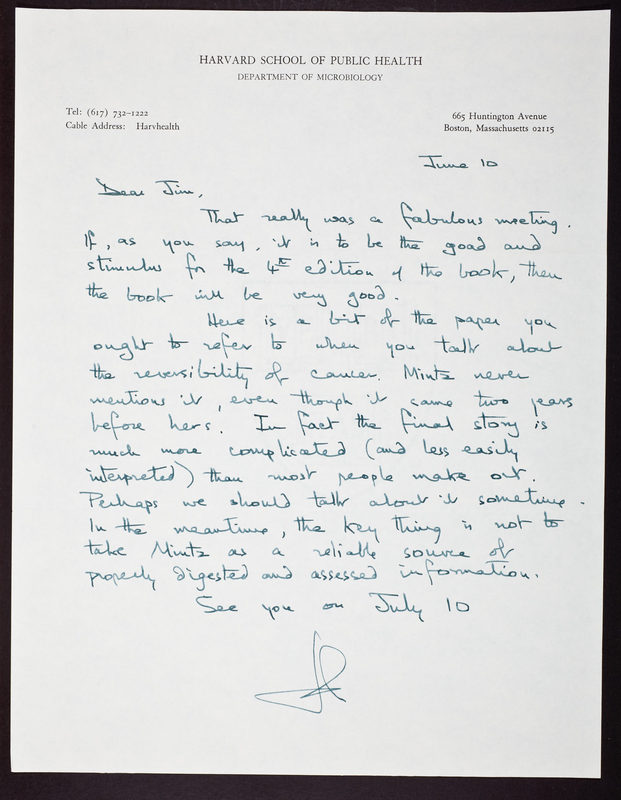 HARVARD SCHOOL OF PUBLIC HEALTH
DEPARTMENT OF MICROBIOLOGY
Tel: (617) 732-1222
Cable Address: Harvhealth
665 Huntington Avenue
Boston, Massachusetts 02115
June 10
Dear Jim,
That really was a fabulous meeting.
If, as you say, it is to be the goad and
stimulus for the 4th edition of the book, then
the book will be very good.
Here is a bit of the paper you
ought to refer to when you talk about
the reversibility of cancer. Mintz never
mentions it, even though it came two years
before hers. In fact the final story is
much more complicated (and less easily
interpreted) than most people make out.
Perhaps we should talk about it sometime.
In the meantime, the key thing is not to
take Mintz as a reliable source of
properly digested and assessed information.
See you on July 10